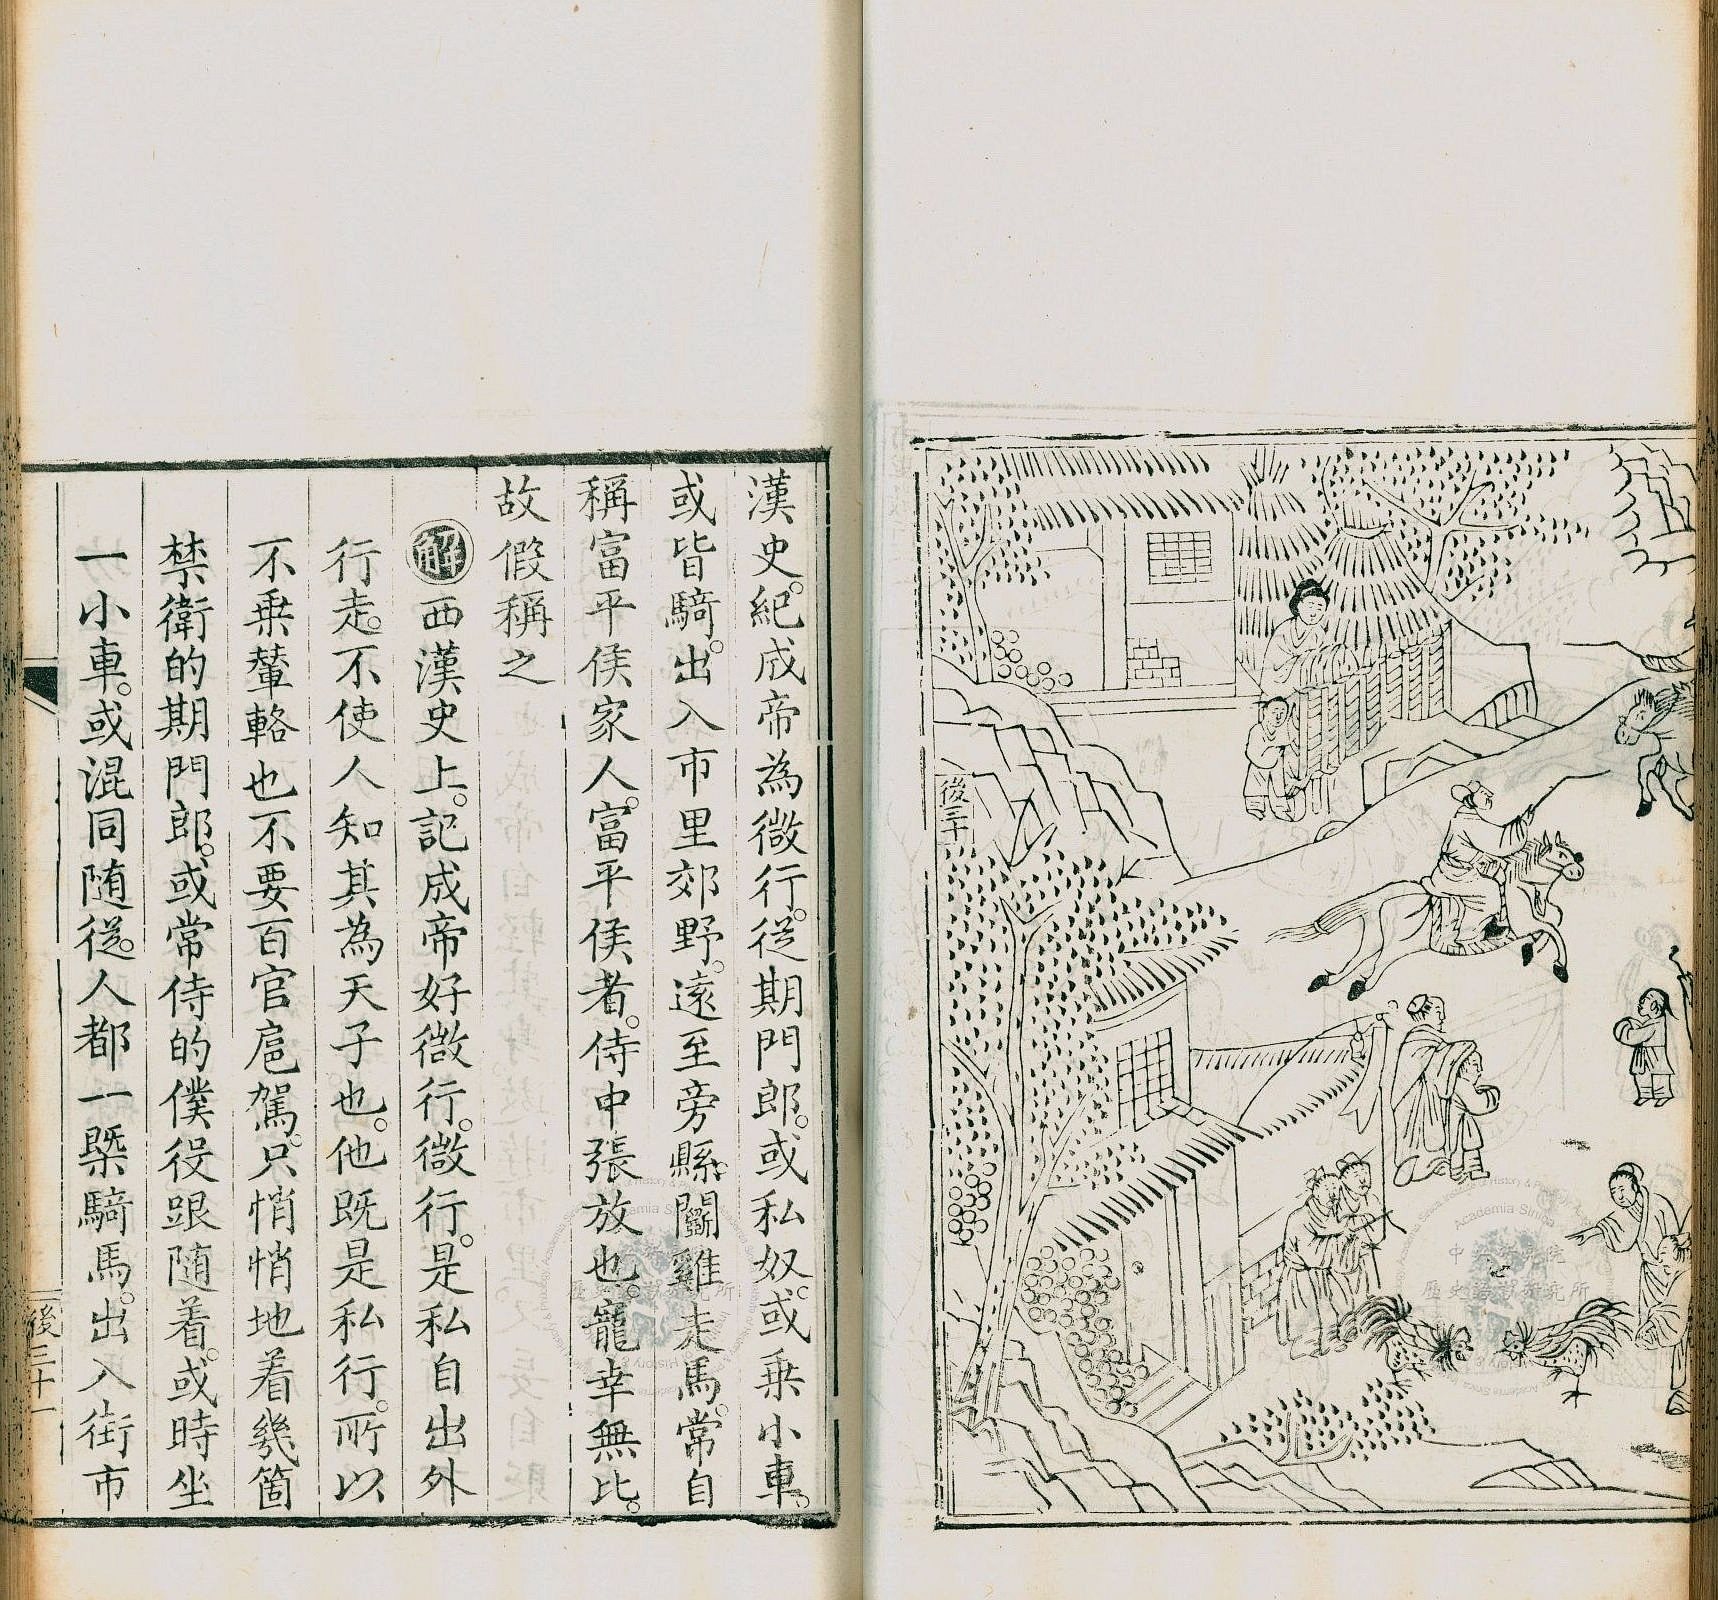 後三十
漢史。紀成帝為微行。從期門郎。或私奴。或乘小車。
或皆騎。出入市里郊野。遠至旁縣。鬭雞走馬。常自
稱富平侯家人。富平侯者。侍中張放也。寵幸無比。
故假稱之
解 西漢史上。記成帝好微行。微行。是私自出外
行走。不使人知其為天子也。他既是私行。所以
不乘輦輅也不要百官扈駕。只悄悄地着幾箇
禁衛的期門郎。或常侍的僕役跟隨着。或時坐
一小車。或混同随從。人都一槩騎馬。出入街市
後三十一
中央研究院
歷史語言研究所
Academia Sinica